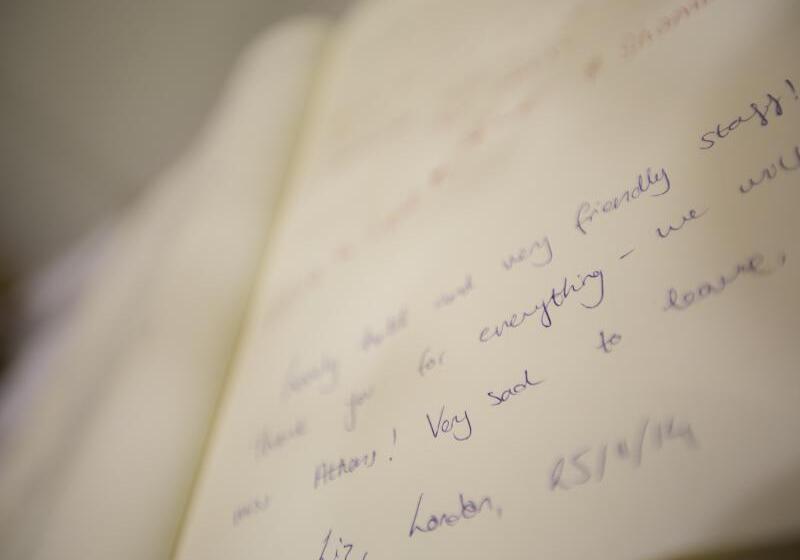 Lovely hotel and very friendly staff!
thank you for everything – we will
miss Athens! Very sad to leave,
Liz, London,